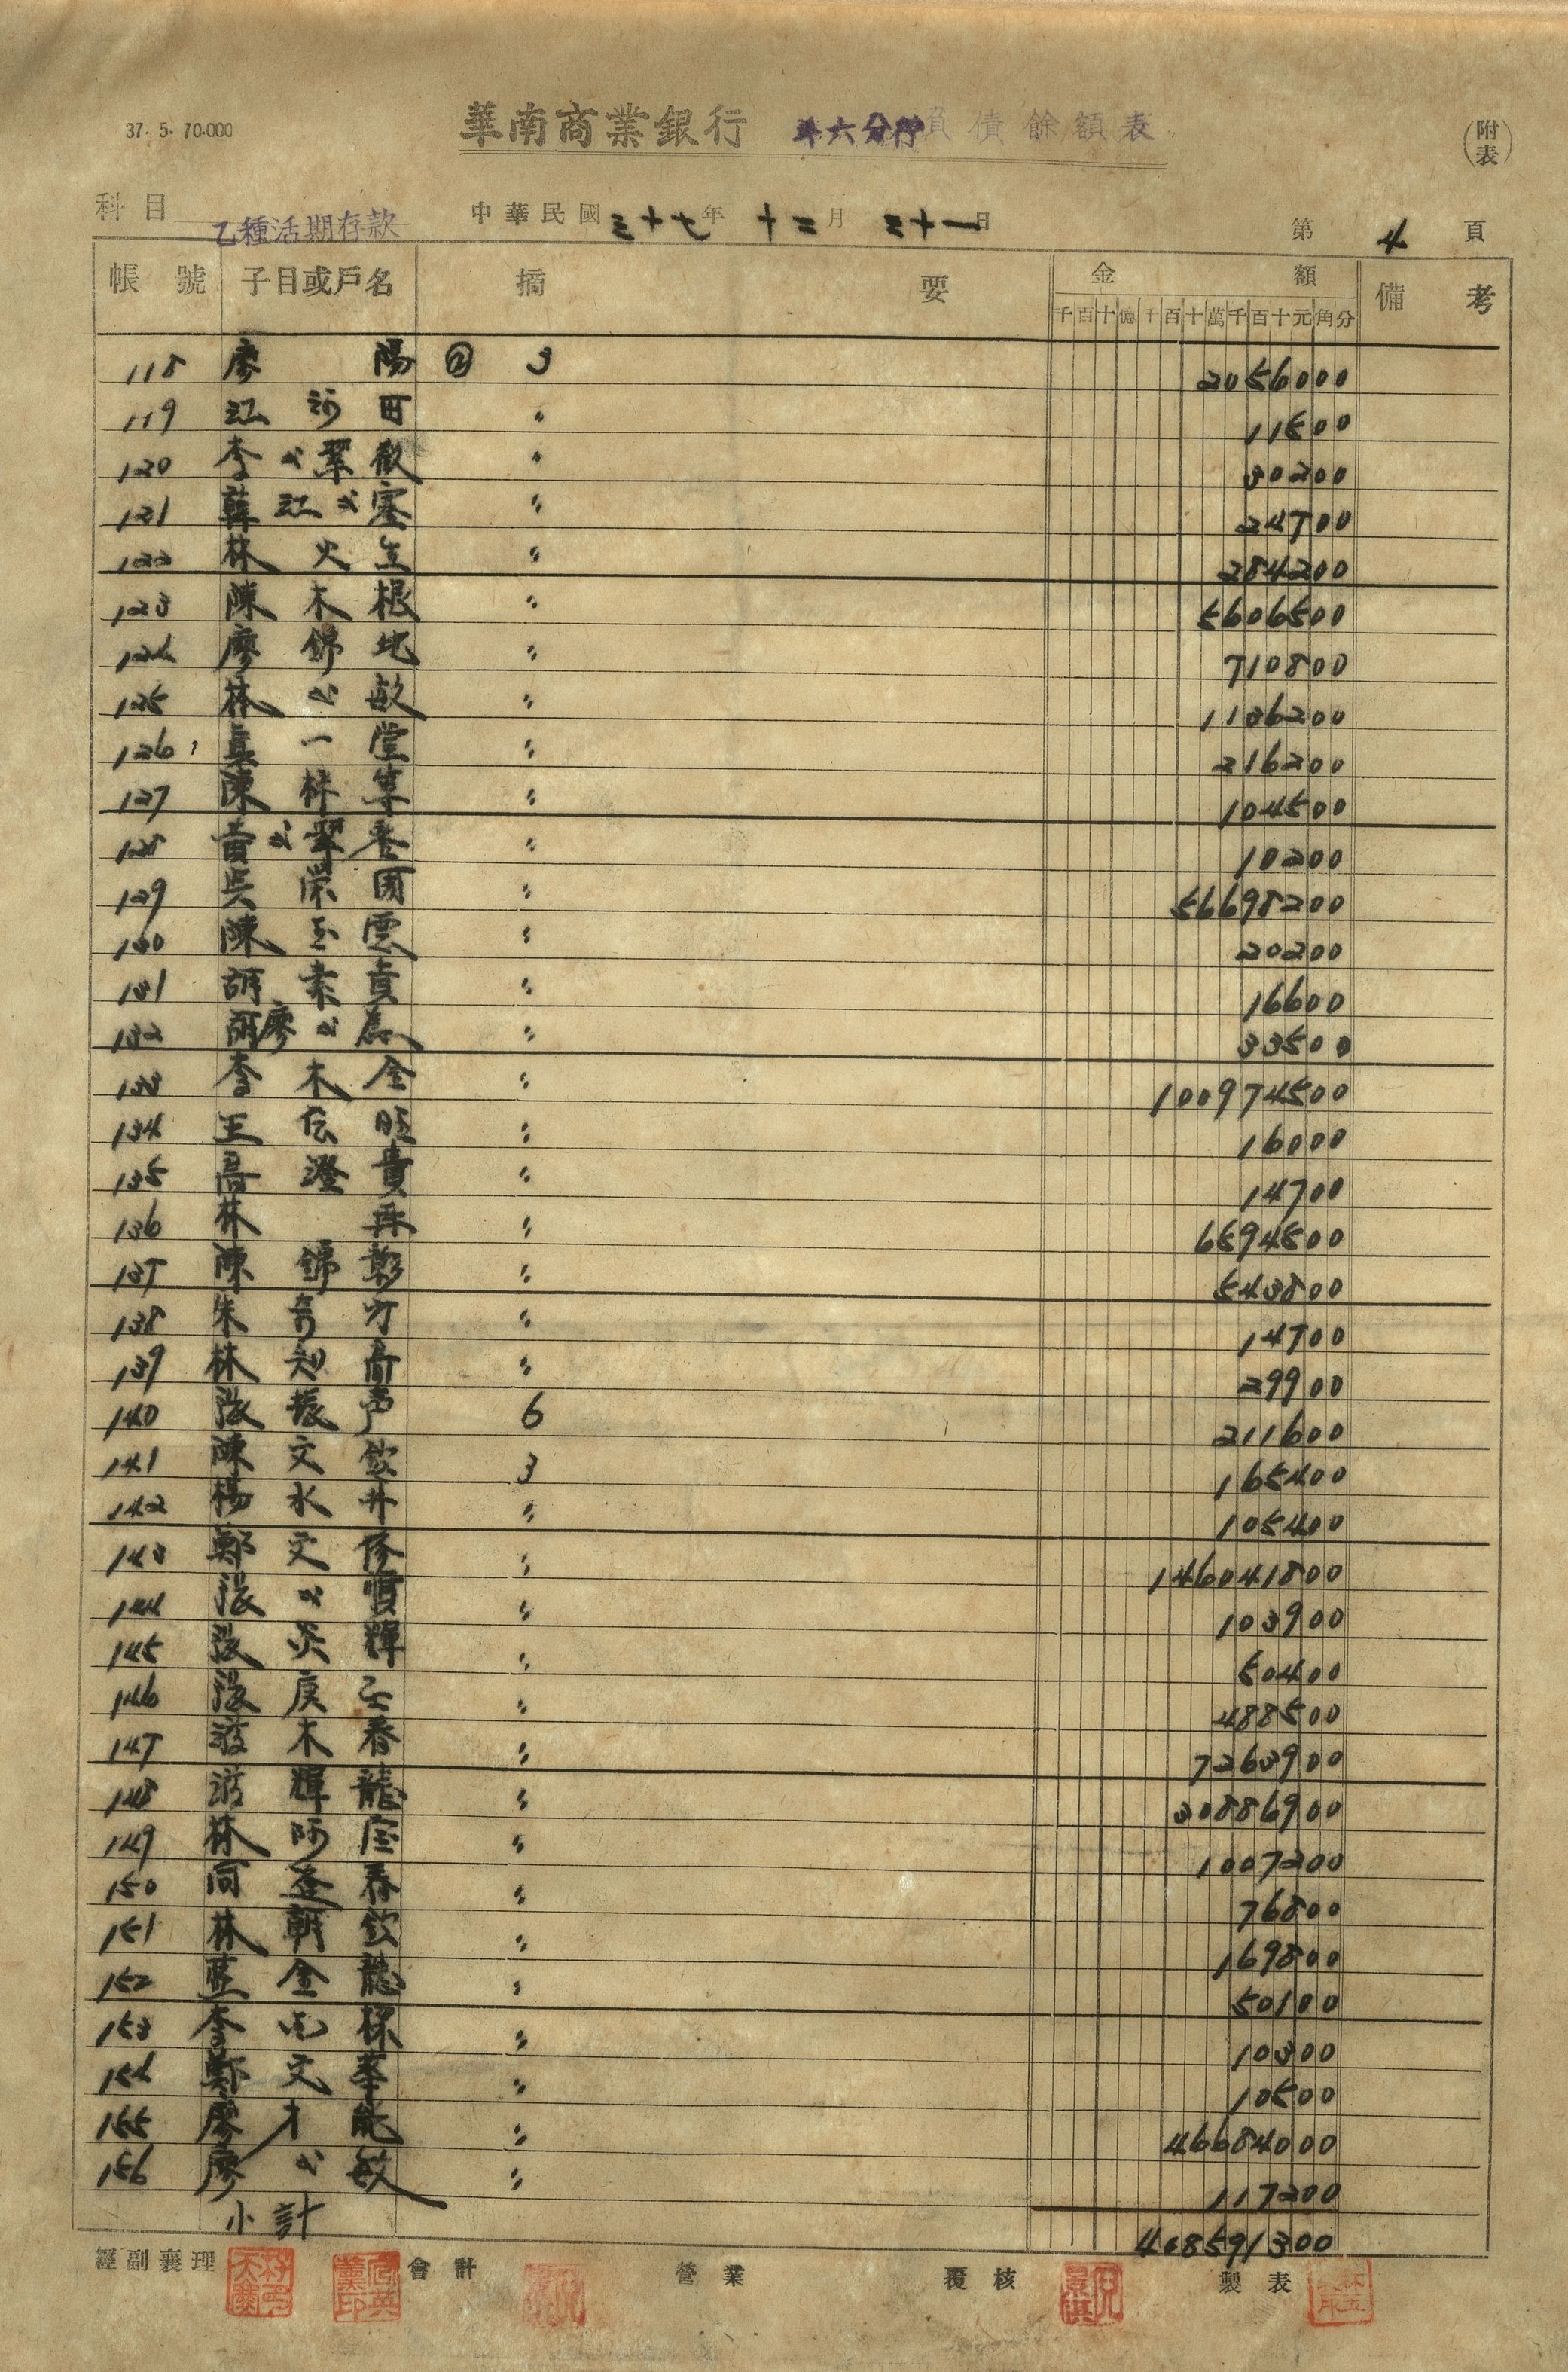 37. 5. 70.000
華南商業銀行 分行 負債餘額表
(附表)
科目 乙種活期存款 中華民國三十七年十二月三十一日 第4頁
帳號 子目或戶名 摘要 金額 備考
千百十億千百十萬千百十元角分
118 廖陽 3 2056000
119 江 〃 11500
120 李 〃 30200
121 韓江 〃 24700
122 林火生 〃 284200
123 陳木根 〃 5606500
124 廖錦地 〃 710800
125 林 敏 〃 1136200
126 真一堂 〃 216200
127 陳 〃 104500
128 黃 〃 10200
129 吳 〃 56698200
130 陳玉雲 〃 20200
131 胡素貞 〃 16600
132 廖 〃 33500
133 李木全 〃 100974500
134 王 旺 〃 16000
135 呂澄貴 〃 14700
136 林 〃 6594500
137 陳錦彰 〃 543800
138 朱奇才 〃 14700
139 林知高 〃 29900
140 張振声 6 211600
141 陳文欽 3 165400
142 楊水井 〃 105400
143 鄭文修 〃 146041800
144 張 〃 103900
145 張 輝 〃 50400
146 張 〃 488500
147 游木春 〃 7263900
148 游輝龍 〃 30886900
149 林阿 〃 1007200
150 春 〃 76800
151 林朝欽 〃 169800
152 藍金龍 〃 50100
153 李 〃 10300
154 鄭文 〃 10500
155 廖才能 〃 46684000
156 廖 敏 〃 117200
小計 408591300
經副襄理 會計 營業 覆核 製表